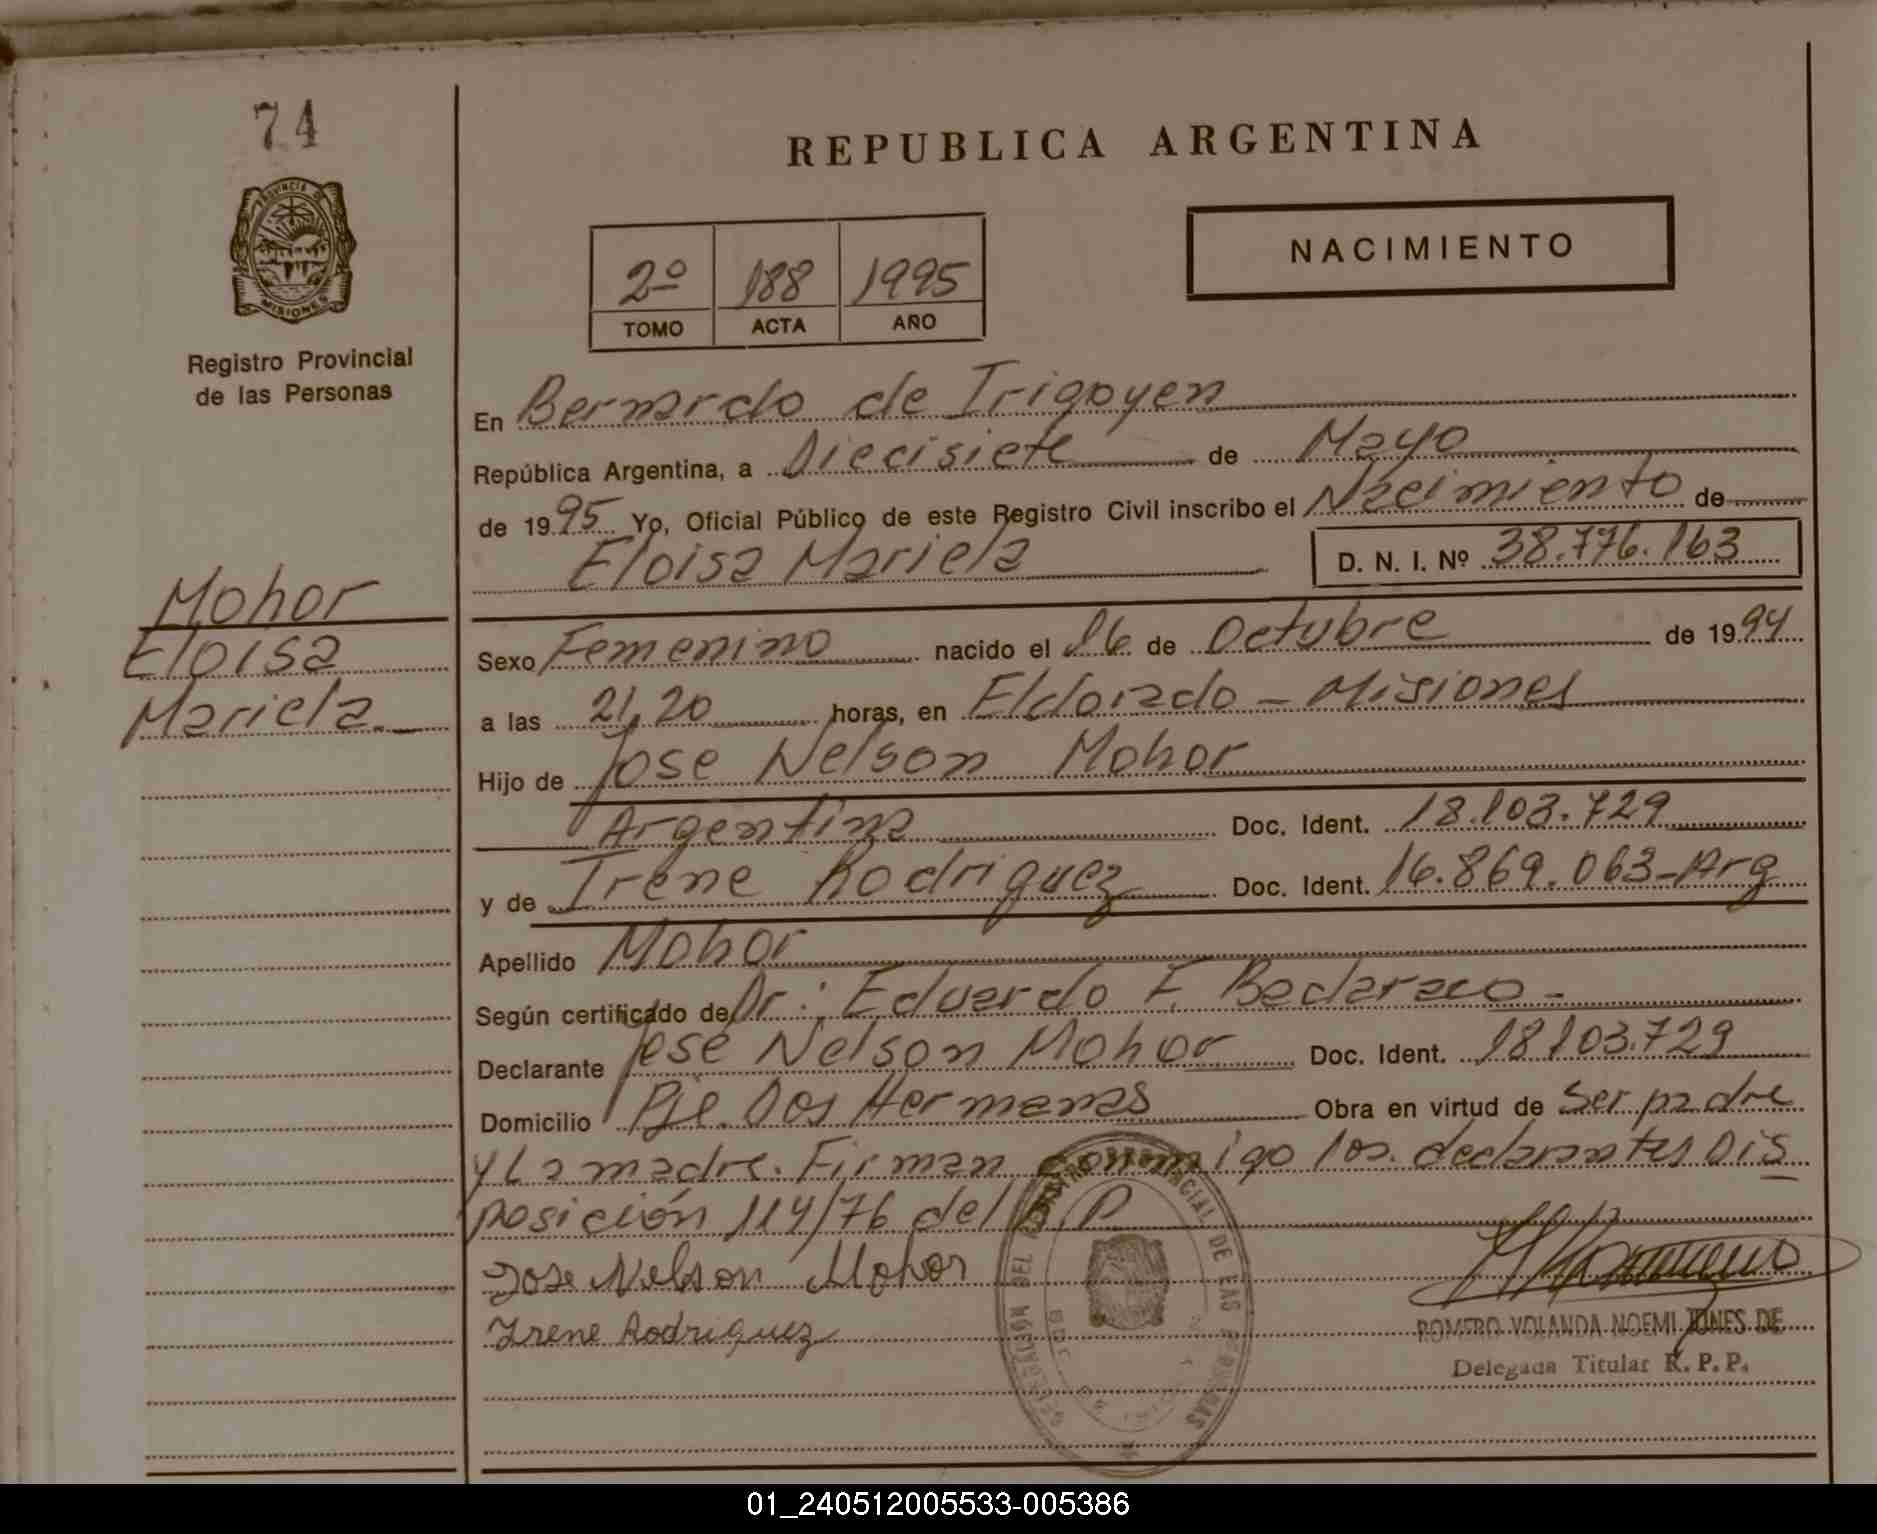 74
PROVINCIA DE
MISIONES
Registro Provincial
de las Personas
Mohor
Eloisa
Mariela
REPUBLICA ARGENTINA
NACIMIENTO
2º 188 1995
TOMO ACTA AÑO
En Bernardo de Irigoyen
República Argentina, a Diecisiete de Mayo
de 1995 Yo, Oficial Público de este Registro Civil inscribo el Nacimiento de
Eloisa Mariela D. N. I. Nº 38.776.163
Sexo Femenino nacido el 16 de Octubre de 1994
a las 21,20 horas, en Eldorado - Misiones
Hijo de Jose Nelson Mohor
Argentina Doc. Ident. 18.103.729
y de Irene Rodriguez Doc. Ident. 16.869.063-Arg
Apellido Mohor
Según certificado de Dr.: Eduardo F. Badaraco -
Declarante Jose Nelson Mohor Doc. Ident. 18103.729
Domicilio Pje. Dos Hermanas Obra en virtud de Ser padre
y La madre. Firman conmigo los declarantes Dis
posición 114/76 del R.P
Jose Nelson Mohor
Irene Rodriguez
ROMERO YOLANDA NOEMI JONES DE
Delegada Titular R. P. P.
01_240512005533-005386